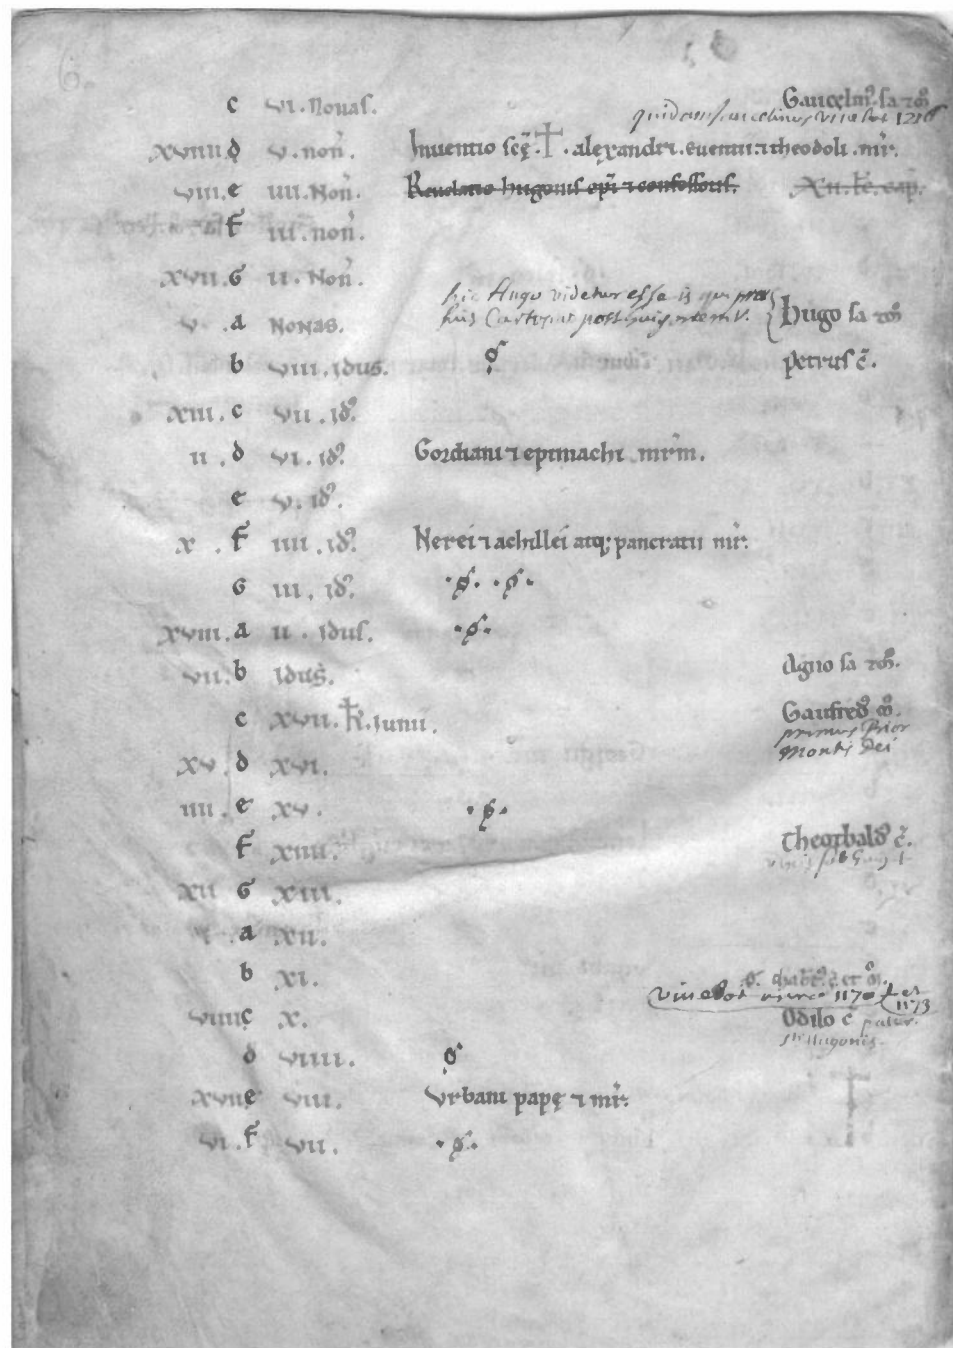 6.
c vi. Nonas. Gaucelm⁹. sa ⁊ m̄
quidam Gaucelinus vivebat 1216
xviiii. d v. non̄. Inuentio scę̄. ☩. alexandri. euentii. ⁊ theodoli. mr̄.
viii. e iiii. Non̄. Reuelatio hugonis epī ⁊ confessoris. xii. lc̄. cap̄.
f iii. non̄.
xvii. G ii. Non̄.
hic Hugo videtur esse is qui prae
v. a Nonas. fuit Cartusiae post Guigonem V. hugo sa ⁊ m̄
b viii. idus. ꝯ petrus c̄.
xiii. c vii. id⁹.
ii. d vi. id⁹. Gordiani ⁊ epimachi mr̄m.
e v. id⁹.
x. f iiii. id⁹. Nerei ⁊ achillei atq; pancratii mr̄.
G iii. id⁹.
xviii. a ii. idus.
vii. b idus. Aguo sa ⁊ m̄.
c xvii. k̄. iunii. Gaufred⁹ m̄.
primus Prior
xv. d xvi. Montis Dei
iiii. e xv.
f xiiii. Theotbald⁹ c̄.
xii G xiii.
a xii.
b xi. c̄ et m̄.
vivebat circa 1170 et 1173
viiii c x. Odilo c̄ pater
d viiii. sti Hugonis.
xvii e viii. Vrbani papę ⁊ mr̄.
vi. f vii.